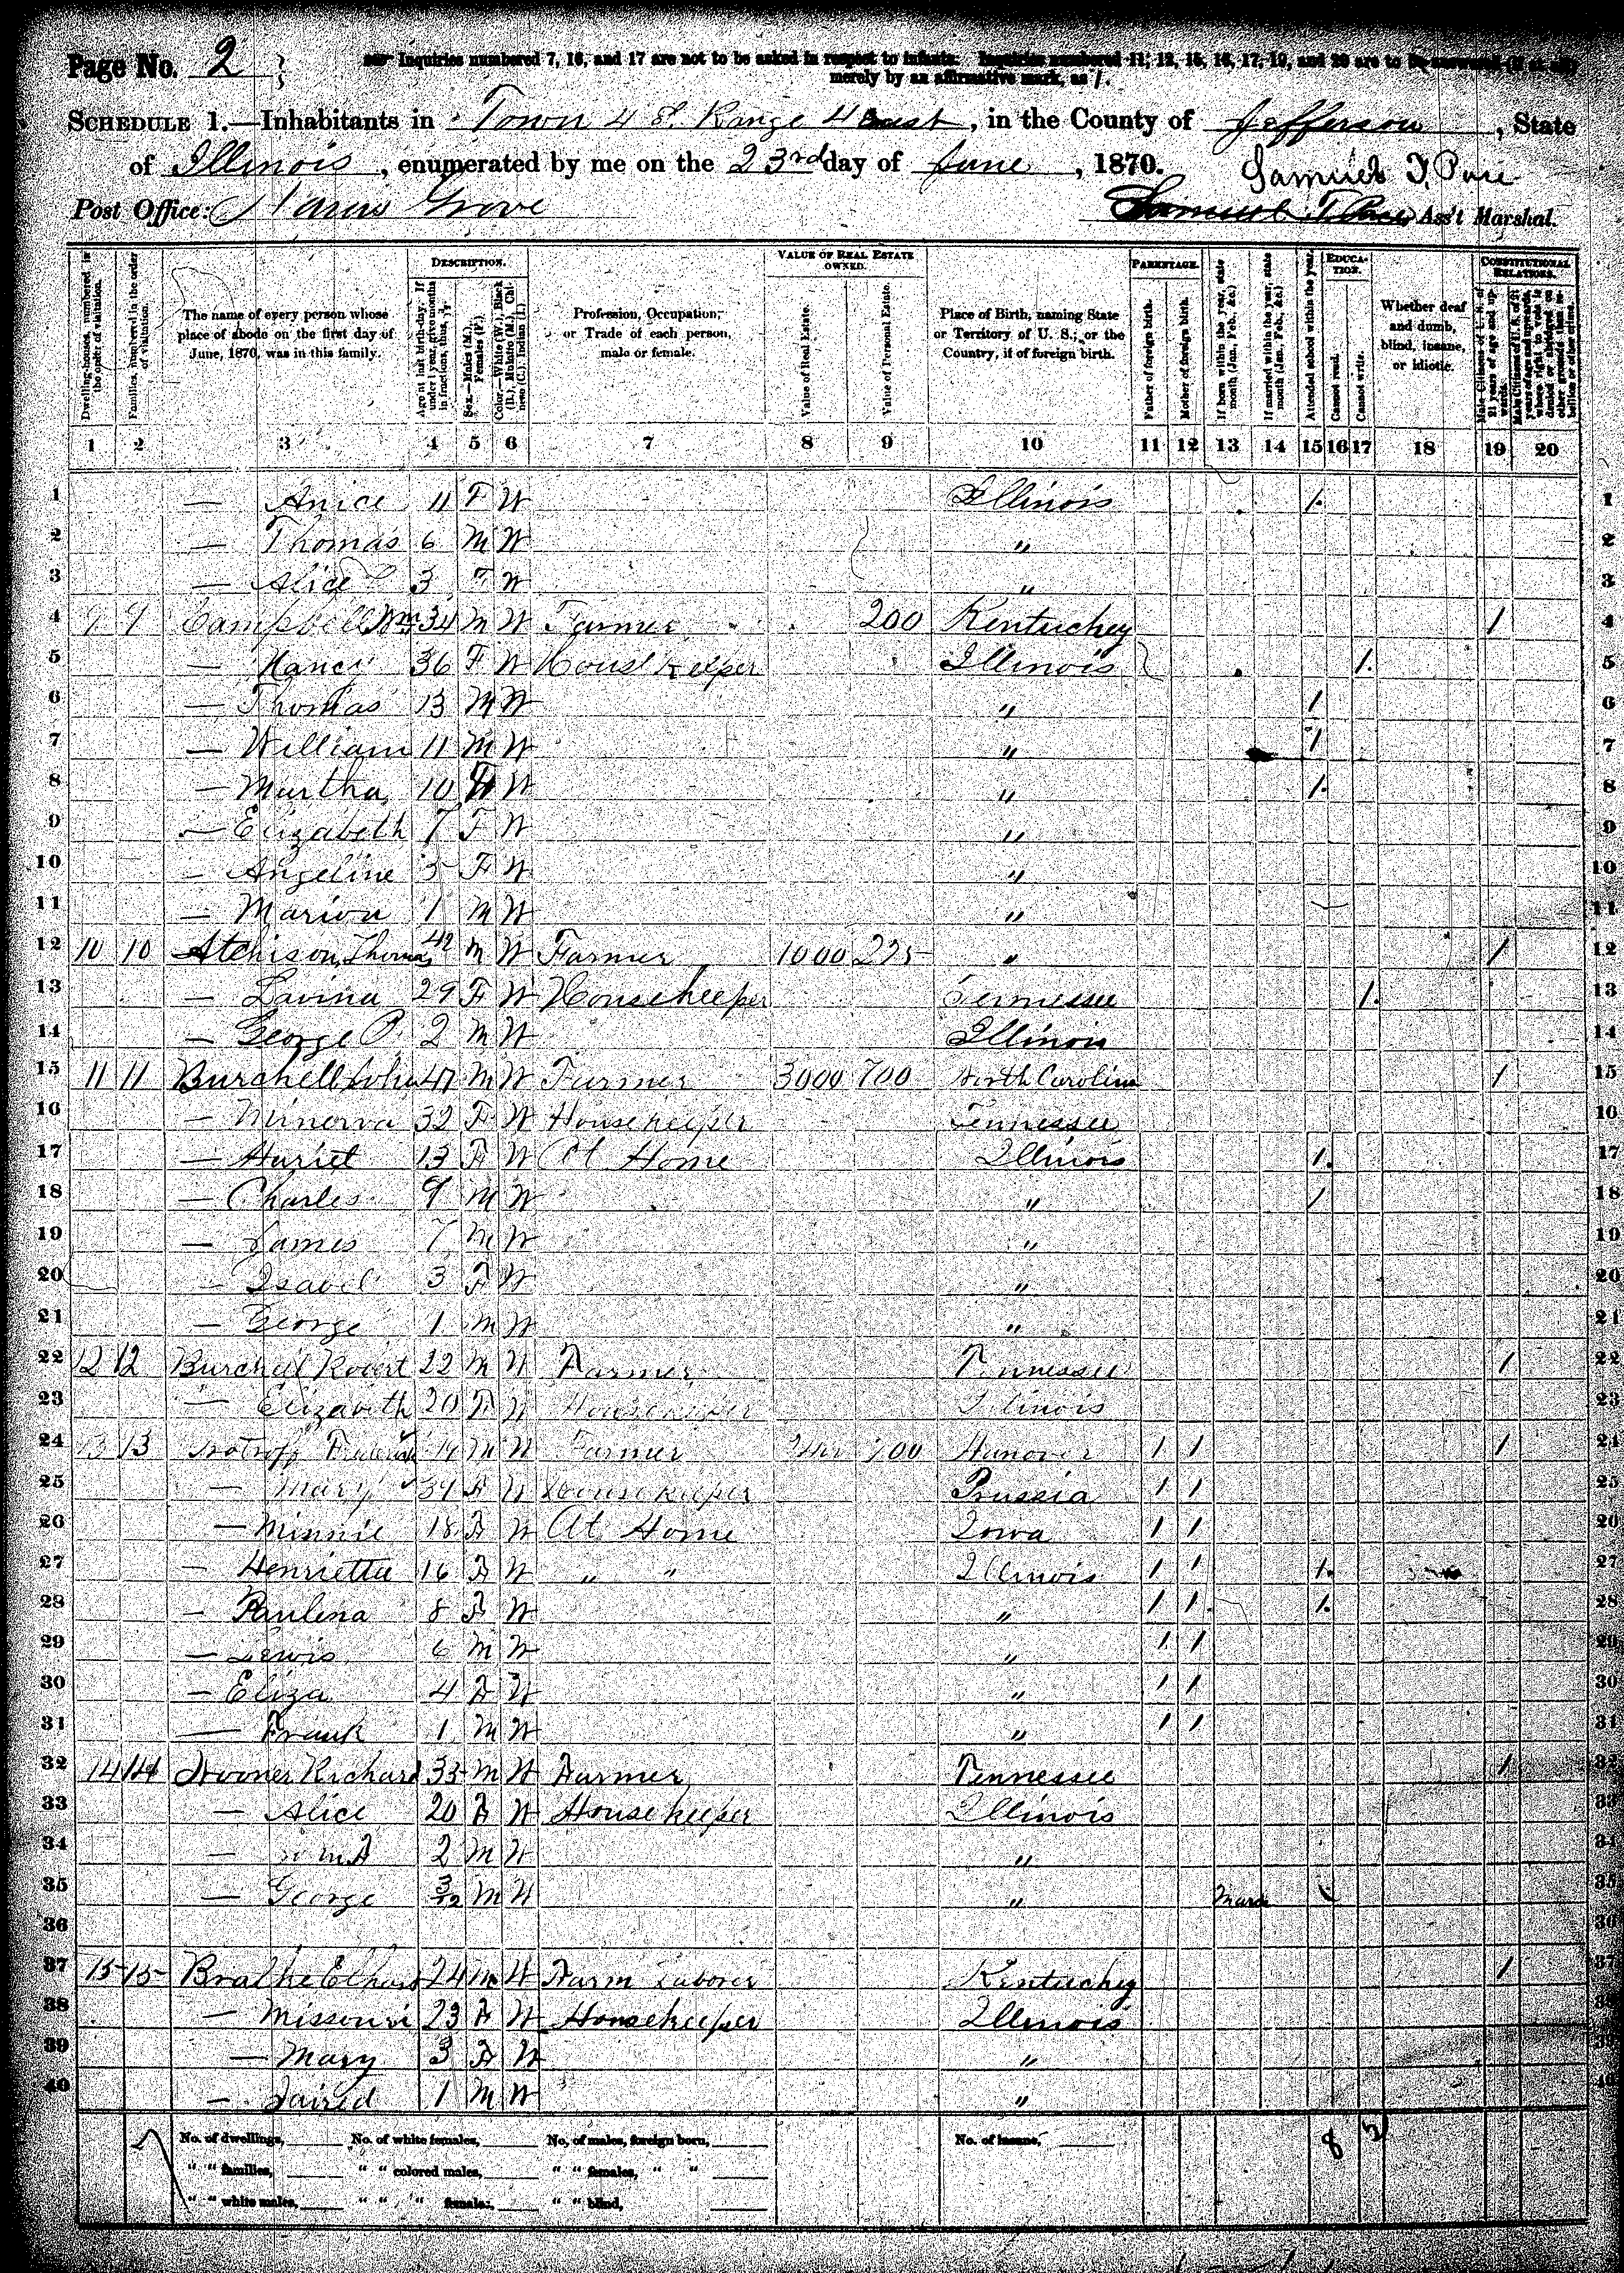 Page No. 2
Inquiries numbered 7, 16, and 17 are not to be asked in respect to infants. Inquiries numbered 11, 12, 15, 16, 17, 19, and 20 are to be answered (if at all)
merely by an affirmative mark, as /.
SCHEDULE 1.—Inhabitants in Town 4 S. Range 4 East, in the County of Jefferson, State
of Illinois, enumerated by me on the 23rd day of June, 1870.
Post Office: Grove Ass't Marshal.
DESCRIPTION. VALUE OF REAL ESTATE OWNED. PARENTAGE. EDUCATION. CONSTITUTIONAL RELATIONS.
Dwelling-houses, numbered in the order of visitation.
Families, numbered in the order of visitation.
The name of every person whose place of abode on the first day of June, 1870, was in this family.
Age at last birth-day. If under 1 year, give months in fractions, thus, 3/12
Sex.—Males (M.), Females (F.)
Color.—White (W.), Black (B.), Mulatto (M.), Chinese (C.), Indian (I.)
Profession, Occupation, or Trade of each person, male or female.
Value of Real Estate.
Value of Personal Estate.
Place of Birth, naming State or Territory of U. S.; or the Country, if of foreign birth.
Father of foreign birth.
Mother of foreign birth.
If born within the year, state month (Jan. Feb., &c.)
If married within the year, state month (Jan. Feb., &c.)
Attended school within the year.
Cannot read.
Cannot write.
Whether deaf and dumb, blind, insane, or idiotic.
Male Citizens of U. S. of 21 years of age and upwards.
Male Citizens of U. S. of 21 years of age and upwards, where right to vote is denied or abridged on other grounds than rebellion or other crime.
1 2 3 4 5 6 7 8 9 10 11 12 13 14 15 16 17 18 19 20
1 — Anice 11 F W Illinois / 1
2 — Thomas 6 M W " 2
3 — Alice 3 F W " 3
4 9 9 Campbell Wm 34 M W Farmer 200 Kentuckey / 4
5 — Nancy 36 F W House Keeper Illinois / 5
6 — Thomas 13 M W " / 6
7 — William 11 M W " / 7
8 — Martha 10 F W " / 8
9 — Elizabeth 7 F W " 9
10 — Angeline 3 F W " 10
11 — Marion 1 M W " 11
12 10 10 Atchison, Thomas 42 M W Farmer 1000 225 " / 12
13 — Lavina 29 F W Housekeeper Tennessee / 13
14 — George P. 2 M W Illinois 14
15 11 11 Burchell John 47 M W Farmer 3000 700 North Carolina / 15
16 — Minerva 32 F W Housekeeper Tennessee 16
17 — Hariet 13 F W At Home Illinois / 17
18 — Charles 9 M W " / 18
19 — James 7 M W " 19
20 — Isabel 3 F W " 20
21 — George 1 M W " 21
22 12 12 Burchell Robert 22 M W Farmer Tennessee / 22
23 — Elizabeth 20 F W Housekeeper Illinois 23
24 13 13 M W Farmer 700 Hanover / / / 24
25 — Mary 39 F W House Keeper Prussia / / 25
26 — Minnie 18 F W At Home Iowa / / 26
27 — Henrietta 16 F W " " Illinois / / / 27
28 — Paulina 8 F W " / / / 28
29 — Lewis 6 M W " / / 29
30 — Eliza 4 F W " / / 30
31 — Frank 1 M W " / / 31
32 14 14 Richard 33 M W Farmer Tennessee / 32
33 — Alice 20 F W Housekeeper Illinois 33
34 — 2 M W " 34
35 — George 3/12 M W " March 35
36 36
37 15 15 24 M W Farm Laborer Kentuckey / 37
38 — Missouri 23 F W Housekeeper Illinois 38
39 — Mary 3 F W " 39
40 — Jaired 1 M W " 40
No. of dwellings, No. of white females, No. of males, foreign born, No. of insane, 8 2
" " families, " " colored males, " " females, " "
" " white males, " " " females, " " blind,